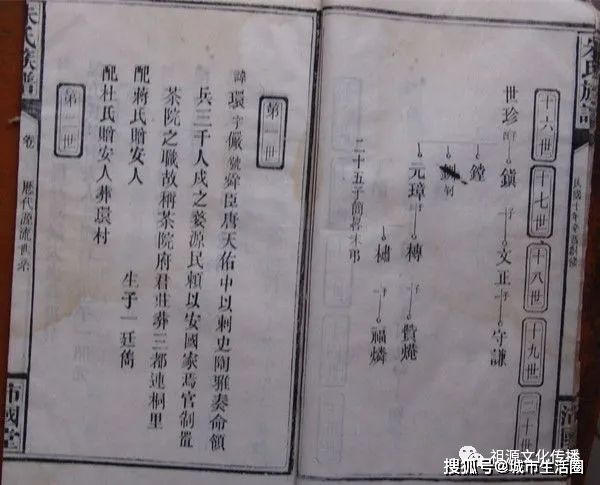 氏族譜
十六世
十七世
十八世
十九世
二十世
世珍 子 鎮 子 文正 子 守謙
鏜
元璋 子
橚 子
二十五子
第一世
諱環字佩號舜臣唐天佑中以刺史陶雅奏命領
兵三千人戍之婺源民賴以安國家焉官制置
茶院之職故稱茶院府君葬三都連桐里
配蔣氏贈安人
配杜氏贈安人葬環村
生子一廷雋
第二世
朱氏族譜
卷
歷代源流世系
沛國堂
祖源文化传播
搜狐号@城市生活圈